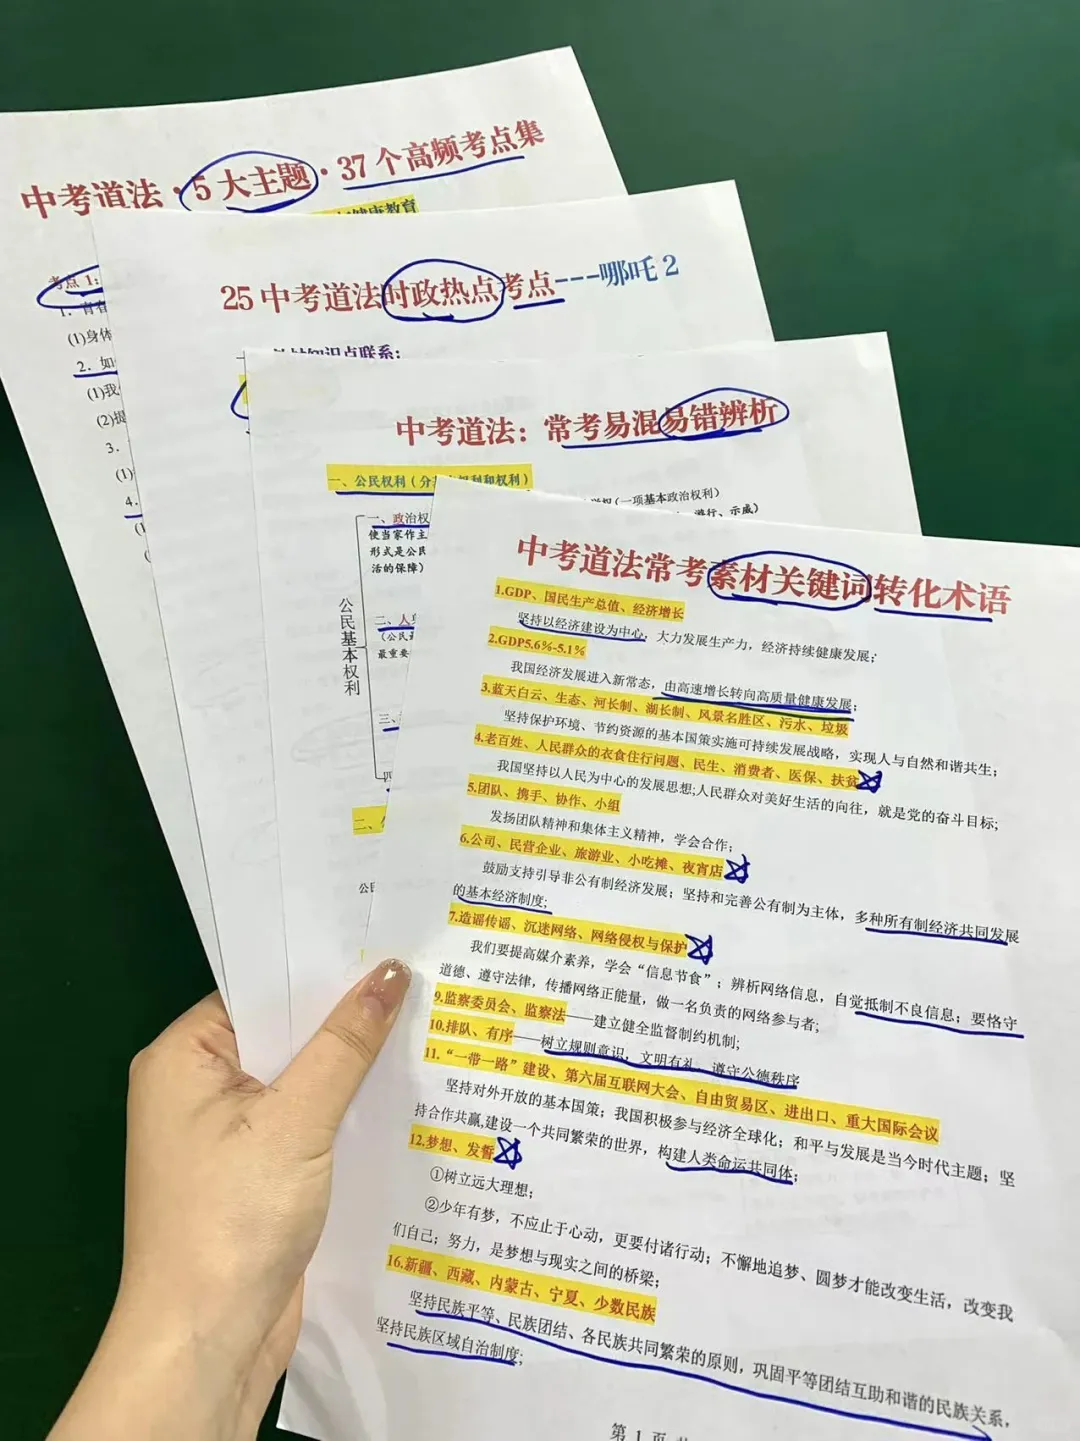 中考道法·5大主题·37个高频考点集
健康教育
考点1:
1. 青春
(1)身体
2. 如
(1)我
(2)提
3.
(1)
4.
25中考道法时政热点考点---哪吒2
知识点联系:
中考道法：常考易混易错辨析
一、公民权利（分
权利和权利）
（一项基本政治权利）
游行、示威）
一、政治权
使当家作主
形式是公民
活的保障）
公民基本权利
二、人
（公民
最重要
三、
四
二、
公民
中考道法常考素材关键词转化术语
1.GDP、国民生产总值、经济增长
坚持以经济建设为中心，大力发展生产力，经济持续健康发展；
2.GDP5.6%-5.1%
我国经济发展进入新常态，由高速增长转向高质量健康发展；
3.蓝天白云、生态、河长制、湖长制、风景名胜区、污水、垃圾
坚持保护环境、节约资源的基本国策实施可持续发展战略，实现人与自然和谐共生；
4.老百姓、人民群众的衣食住行问题、民生、消费者、医保、扶贫
我国坚持以人民为中心的发展思想;人民群众对美好生活的向往，就是党的奋斗目标;
5.团队、携手、协作、小组
发扬团队精神和集体主义精神，学会合作；
6.公司、民营企业、旅游业、小吃摊、夜宵店
鼓励支持引导非公有制经济发展；坚持和完善公有制为主体，多种所有制经济共同发展
的基本经济制度;
7.造谣传谣、沉迷网络、网络侵权与保护
我们要提高媒介素养，学会“信息节食”；辨析网络信息，自觉抵制不良信息；要恪守
道德、遵守法律，传播网络正能量，做一名负责的网络参与者；
9.监察委员会、监察法——建立健全监督制约机制;
10.排队、有序——树立规则意识，文明有礼，遵守公德秩序
11.“一带一路”建设、第六届互联网大会、自由贸易区、进出口、重大国际会议
坚持对外开放的基本国策；我国积极参与经济全球化；和平与发展是当今时代主题；坚
持合作共赢,建设一个共同繁荣的世界，构建人类命运共同体；
12.梦想、发誓
①树立远大理想；
②少年有梦，不应止于心动，更要付诸行动；不懈地追梦、圆梦才能改变生活，改变我
们自己；努力，是梦想与现实之间的桥梁；
16.新疆、西藏、内蒙古、宁夏、少数民族
坚持民族平等、民族团结、各民族共同繁荣的原则，巩固平等团结互助和谐的民族关系，
坚持民族区域自治制度;
第 1 页